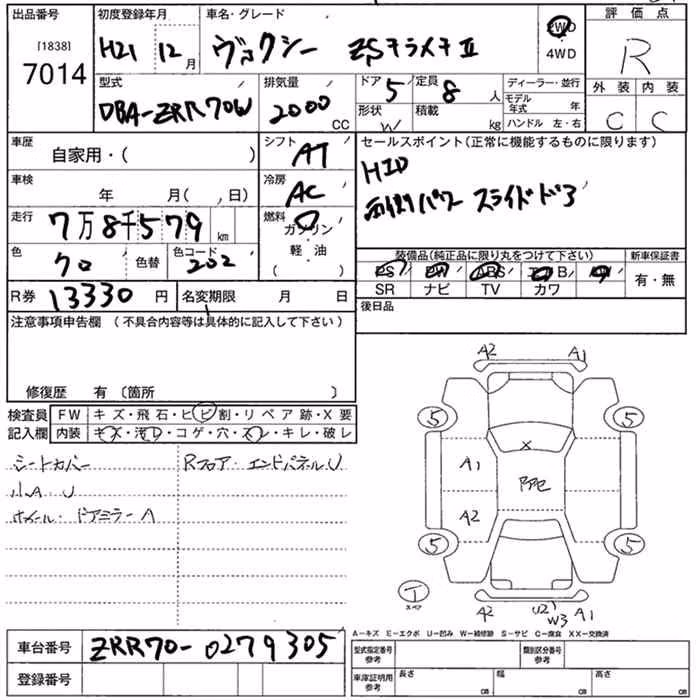 出品番号 初度登録年月 車名・グレード 評価点
[1838]
7014
H21 12月 ヴォクシー ZSキラメキⅡ 2WD R
4WD
型式 排気量 ドア 定員 ディーラー・並行 外装 内装
DBA-ZRR70W 2000CC 5 8人 モデル年式 年
形状 W 積載 kg ハンドル 左・右 C C
車歴 シフト セールスポイント(正常に機能するものに限ります)
自家用・( ) AT HID
車検 冷房 両側パワースライドドア
年 月( , 日) AC
走行 燃料
7万8千579km ガソリン
色 色替 色コード 軽・油 装備品(純正品に限り丸をつけて下さい) 新車保証書
クロ 202 ( ) PS PW ABS エアB AW 有・無
SR ナビ TV カワ
R券 13330円 名変期限 月 日 後日品
注意事項申告欄 (不具合内容等は具体的に記入して下さい)
修復歴 有 〔箇所 〕
検査員 FW キズ・飛石・ヒビ割・リペア跡・X要
記入欄 内装 キズ・汚レ・コゲ・穴・スレ・キレ・破レ
シートカバー Rフロア・エンドパネルU
小A・U
ホイール・ドアミラーA
A2 A1
5 5
X
A1
A2
5 5
T
スペア
A2 U2 W3 A1
A-キズ E-エクボ U-凹み W-補修跡 S-サビ C-腐食 XX-交換済
車台番号 ZRR70-0279305
登録番号
型式指定番号 参考 類別区分番号 参考
車庫証明用 参考 長さ cm 幅 cm 高さ cm